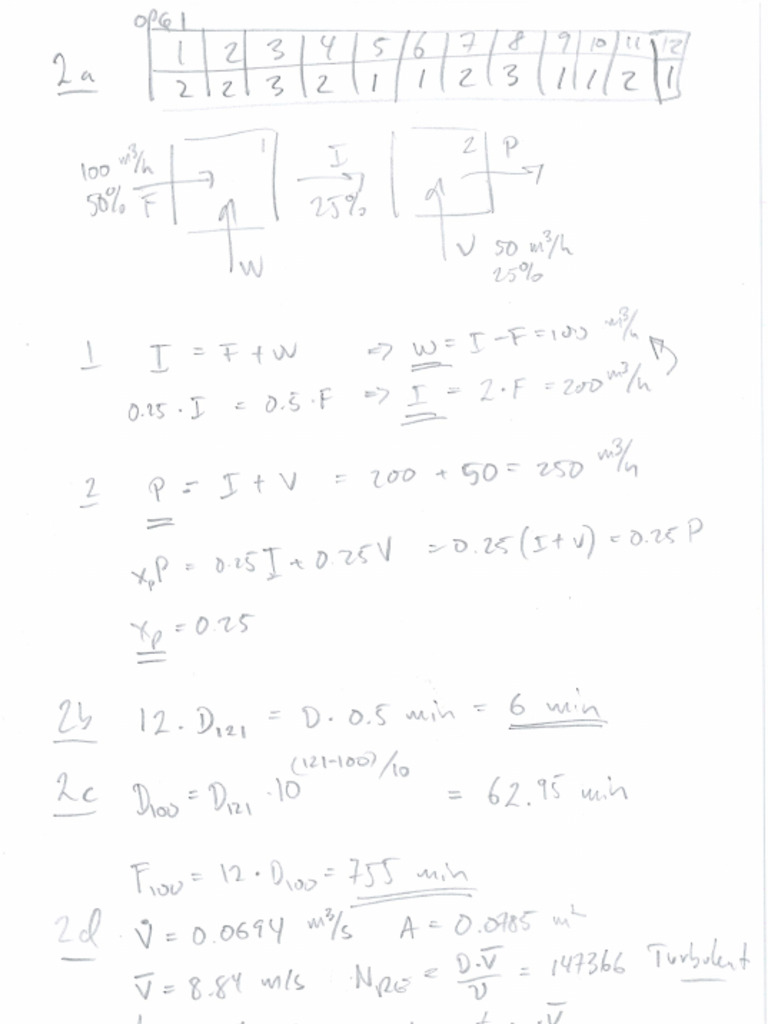 OPG 1
1 2 3 4 5 6 7 8 9 10 11 12
2a 2 2 3 2 1 1 2 3 1 1 2 1
1 I 2 P
100 m³/h
50% F 25%
W V 50 m³/h
25%
1 I = F + W => W = I - F = 100 m³/h
0.25 · I = 0.5 · F => I = 2 · F = 200 m³/h
2 P = I + V = 200 + 50 = 250 m³/h
xₚP = 0.25I + 0.25V = 0.25(I+V) = 0.25P
xₚ = 0.25
2b 12 · D₁₂₁ = D · 0.5 min = 6 min
2c D₁₀₀ = D₁₂₁ · 10^(121-100)/10 = 62.95 min
F₁₀₀ = 12 · D₁₀₀ = 755 min
2d V̇ = 0.0694 m³/s A = 0.0785 m²
V̄ = 8.84 m/s N_RE = D·V̄/ν = 147366 Turbulent